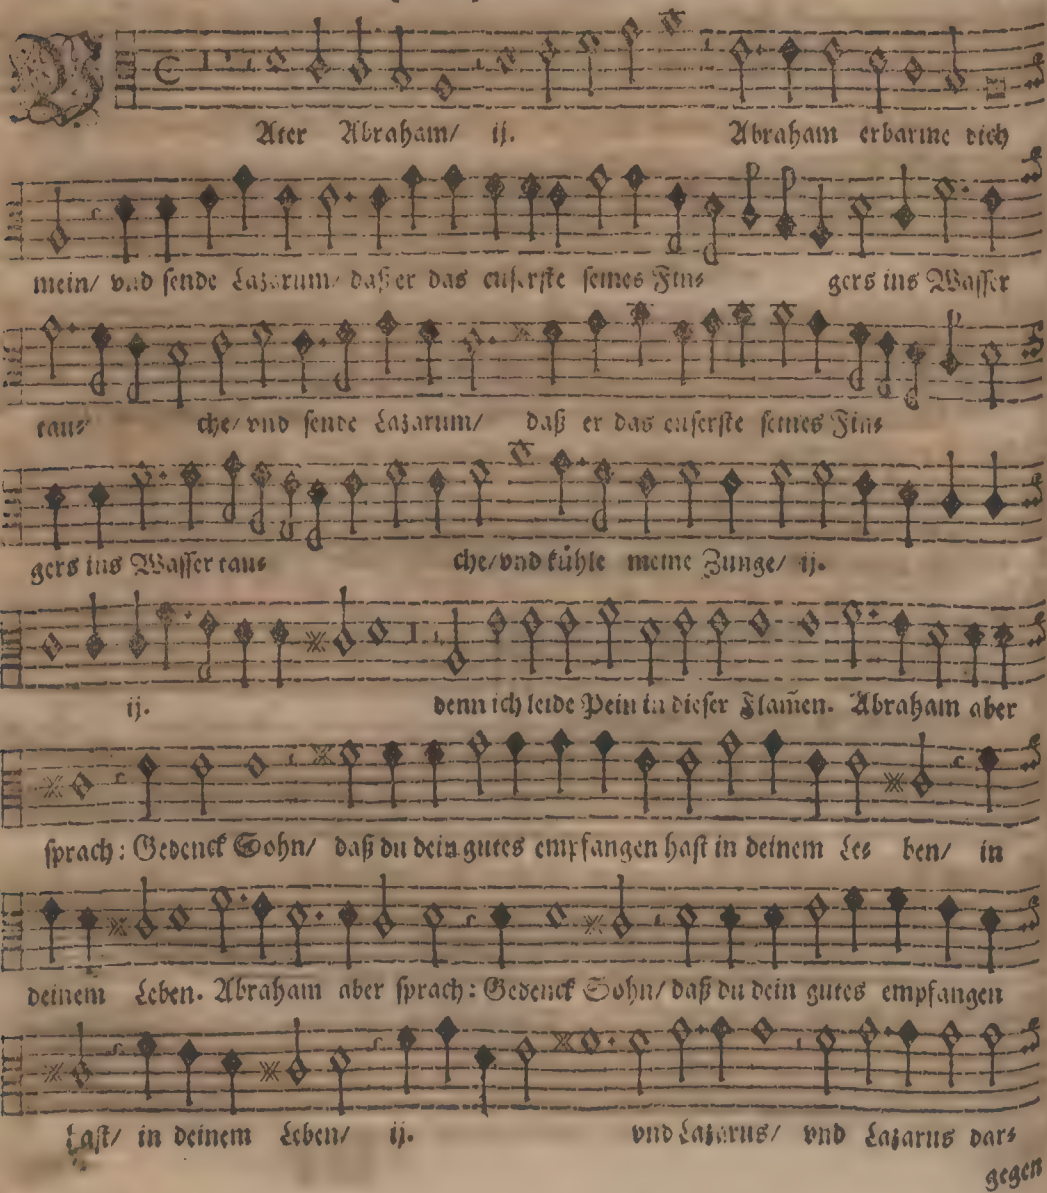 VAter Abraham/ ij. Abraham erbarme dich
mein/ vnd sende Lazarum/ daß er das euserste seines Fin⸗ gers ins Wasser
tau⸗ che/ vnd sende Lazarum/ daß er das euserste seines Fin⸗
gers ins Wasser tau⸗ che/ vnd kühle meine Zunge/ ij.
ij. denn ich leide Pein in dieser Flam̃en. Abraham aber
sprach: Gedenck Sohn/ daß du dein gutes empfangen hast in deinem Le⸗ ben/ in
deinem Leben. Abraham aber sprach: Gedenck Sohn/ daß du dein gutes empfangen
hast/ in deinem Leben/ ij. vnd Lazarus/ vnd Lazarus dar⸗
gegen